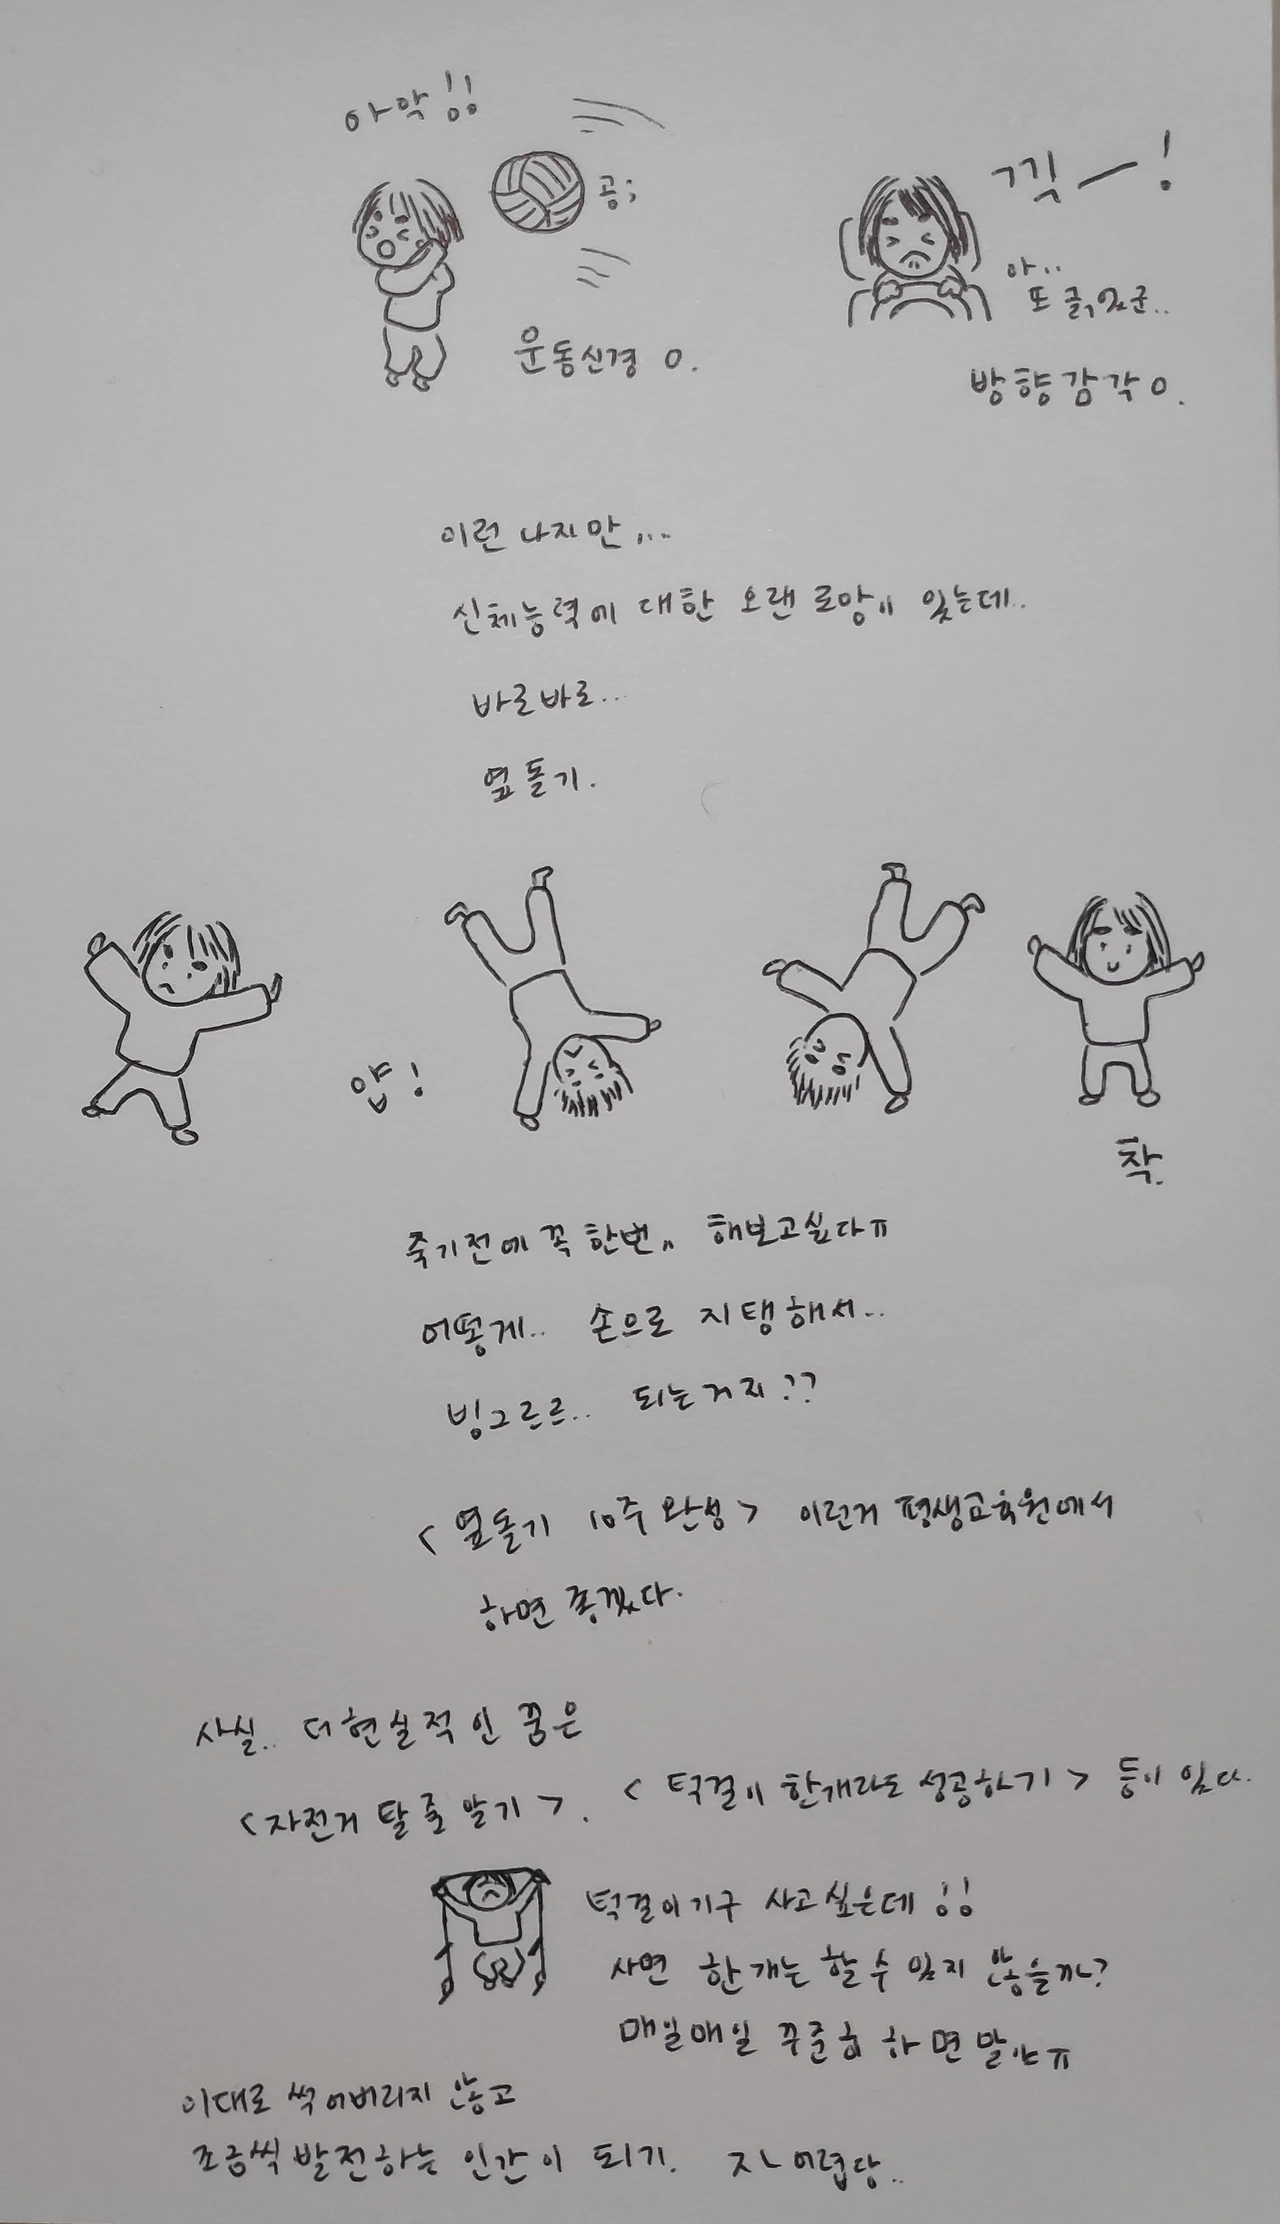 아악!!
공;
운동신경 0.
끽ㅡ!
아..
또 긁었군..
방향감각 0.
이런 나지만...
신체능력에 대한 오랜 로망이 있는데..
바로바로...
옆돌기.
얍!
착.
죽기전에 꼭 한번.. 해보고싶다ㅠ
어떻게.. 손으로 지탱해서..
빙그르르.. 되는거지??
<옆돌기 10주 완성> 이런거 평생교육원에서
하면 좋겠다.
사실.. 더 현실적인 꿈은
<자전거 탈 줄 알기>. <턱걸이 한개라도 성공하기> 등이 있다.
턱걸이기구 사고싶은데!!
사면 한개는 할 수 있지 않을까?
매일매일 꾸준히 하면 말야ㅠ
이대로 썩어버리지 않고
조금씩 발전하는 인간이 되기. 어렵당..